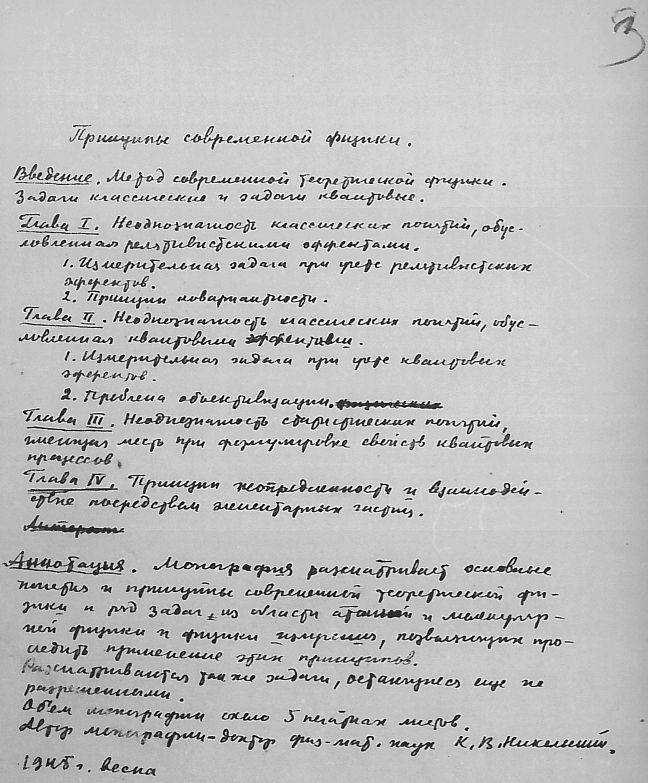 3
Принципы современной физики.
Введение. Метод современной теоретической физики.
Задачи классические и задачи квантовые.
Глава I. Неоднозначность классических понятий, обус-
ловленная релятивистскими эффектами.
1. Измерительная задача при учете релятивистских
эффектов.
2. Принцип ковариантности.
Глава II. Неоднозначность классических понятий, обус-
ловленная квантовыми эффектами.
1. Измерительная задача при учете квантовых
эффектов.
2. Проблема объективизации.
Глава III. Неоднозначность статистических понятий,
имеющая место при формулировке свойств квантовых
процессов
Глава IV. Принцип неопределенности и взаимодей-
ствие посредством элементарных частиц.
Аннотация. Монография рассматривает основные
понятия и принципы современной теоретической фи-
зики и ряд задач, из области атомной и молекуляр-
ной физики и физики, позволяющих про-
следить применение этих принципов.
Рассматриваются также задачи, остающиеся еще не
разрешенными.
Объем монографии около 5 печатных листов.
Автор монографии-доктор физ-мат. наук К. В. Никольский.
1945 г. весна